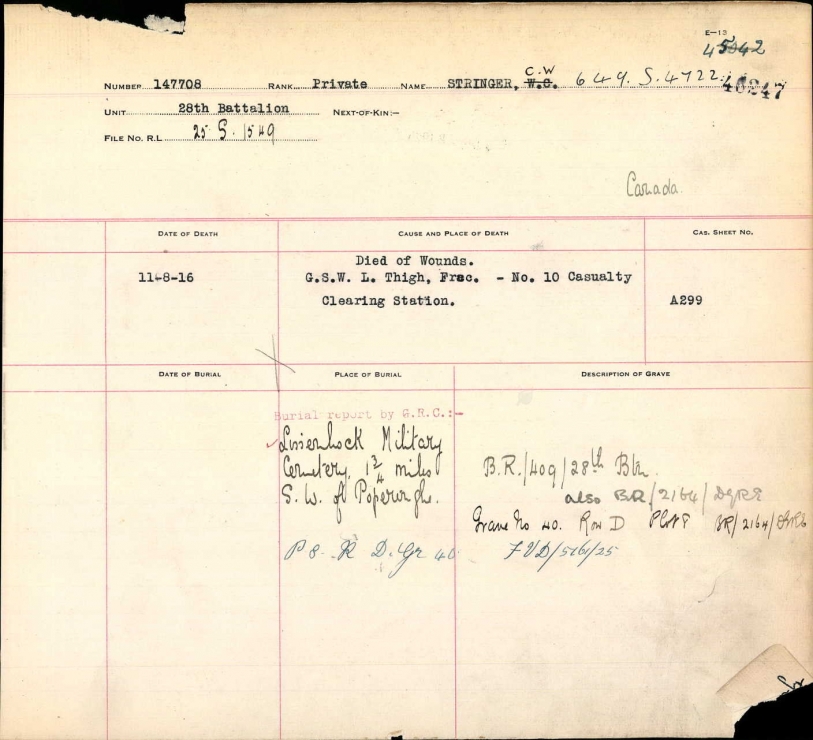 E-13
45042
NUMBER 147708 RANK Private NAME STRINGER, C.W W.C. 649. S. 4722. 40247
UNIT 28th Battalion NEXT-OF-KIN:-
FILE NO. R.L. 25 S. 1549
Canada.
DATE OF DEATH CAUSE AND PLACE OF DEATH CAS. SHEET NO.
Died of Wounds.
11-8-16 G.S.W. L. Thigh, Frac. - No. 10 Casualty
Clearing Station. A299
DATE OF BURIAL PLACE OF BURIAL DESCRIPTION OF GRAVE
Burial report by G.R.C.:-
Lissenhock Military
Cemetery, 1 3/4 miles B.R./409/28th Btn.
S. W. of Poperinghe. also BR/2164/DGRE
Grave No 40. Row D Plot 8 BR/2164/DGRE
P 8. R D. Gr 40 FVD/5161/25